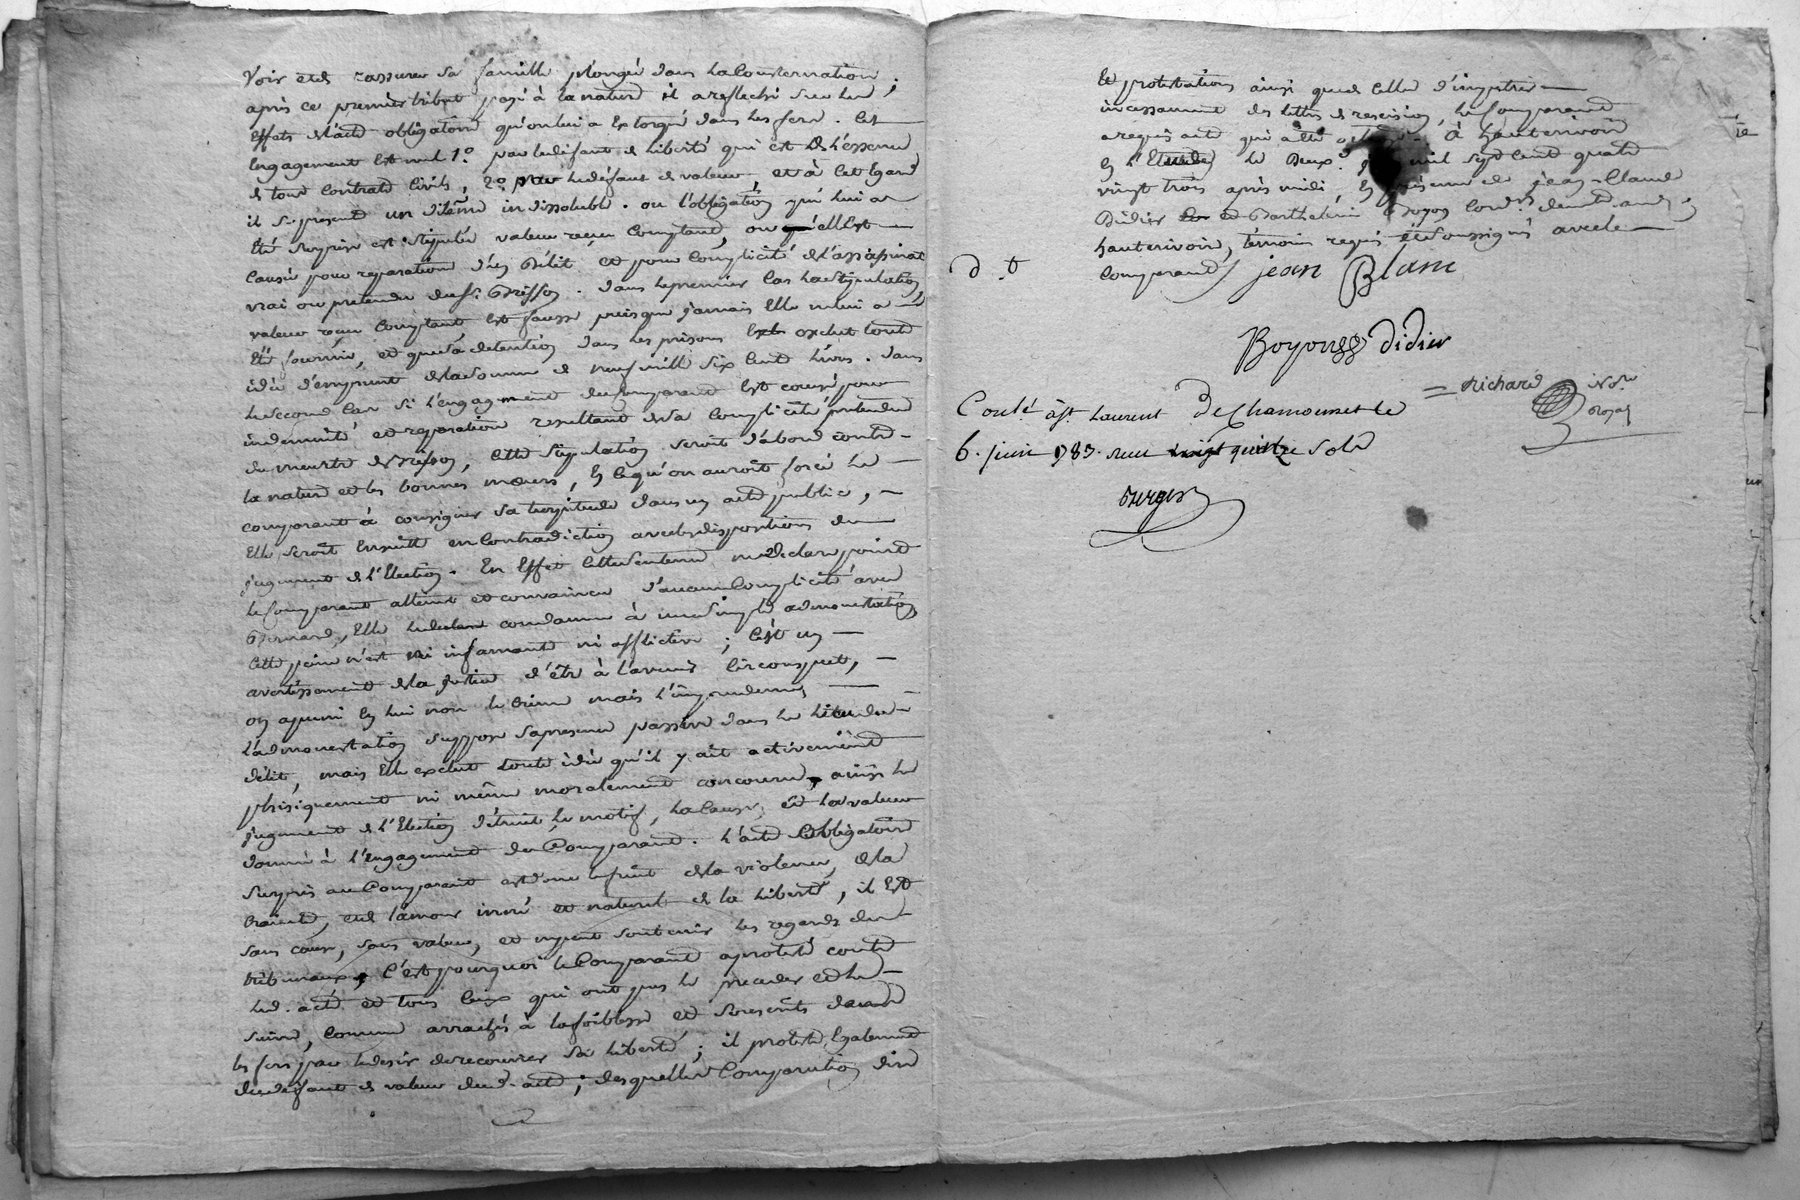 Voir et de rassurer sa famille plongée dans la Consternation ;
après ce premier tribut payé à la nature il a reflechi sur les
Effets de l'acte obligatoire qu'on lui a Extorqué dans les fers. Cet
Engagement Est nul 1.° par le deffaut de Liberté qui est de L'Essence
de tous Contrats Civils, 2.° par le deffaut de valeur, et à cet Egard
il se presente un dileme indissoluble. ou l'obligation qui lui a
Eté surprise est stipulée valeur reçue Comptant, ou qu'elle Est
Causée pour reparation d'un Délit et pour Complicité de L'assassinat
vrai ou pretendu du Sr. Brisson. dans le premier Cas la stipulation
valeur reçue Comptant est fausse puisque jamais Elle ne lui a
Eté fournie, et que sa detention dans les prisons exclut toute
idée d'emprunt de la somme de neuf mille six Cent Livres. dans
le second Cas si l'engagement du Comparant Est causé pour
indemnité et reparation resultant de sa Complicité pretendue
du meurtre de Brisson, cette stipulation seroit d'abord contre
la nature et les bonnes mœurs, En ce qu'on auroit forcé le
comparant à consigner sa turpitude dans un acte public,
Elle seroit Ensuite en Contradiction avec les dispositions du
jugement de l'Election. En Effet cette sentence ne declare point
le Comparant atteint et convaincu d'aucune Complicité avec
Bernard, Elle le condamne à une simple admonestation
Cette peine n'est ni infamante ni afflictive ; C'est un
avertissement de la justice d'être à l'avenir Circonspect,
on a puni En lui non le Crime mais l'imprudence
L'admonestation suppose sa presence passive dans le lieu du
délit, mais Elle exclut toute idée qu'il y ait activement
phisiquement ni même moralement concouru, ainsi le
jugement de l'Election détruit le motif, la Cause, et la valeur
donnée à l'Engagement du Comparant. L'acte obligatoire
Surpris au Comparant est donc le fruit de la violence, de la
Crainte, et de l'amour inné et naturel de la Liberté, il Est
sans cause, sans valeur, et ne peut soutenir les regards des
tribunaux, C'est pourquoi le Comparant a protesté contre
led. acte et tous Ceux qui ont pu le preceder et le
suivre, Comme arrachés à la foiblesse et souscrits dans
les fers par le desir de recouvrer sa Liberté ; il proteste Egalement
du deffaut de valeur dud. acte ; desquelles Comparution dire
et protestations ainsi que de Celle d'impetrer
incessamment des lettres de rescision, le Comparant
a requis acte qui a été à hauterivoire
En l'Etude le Deux mil sept Cent quatre
vingt trois après midi, En presence de jean-Claude
Didier et Barthelemi Boyon Cord.rs demt. aud.
hauterivoire, témoins requis et soussignés avec le
Comparant jean Blanc
d.t
Boyon Didier
= Richard Nore
Royal
Contlé à St. Laurent De Chamousset le
6. juin 1783. reçu quinze Sols